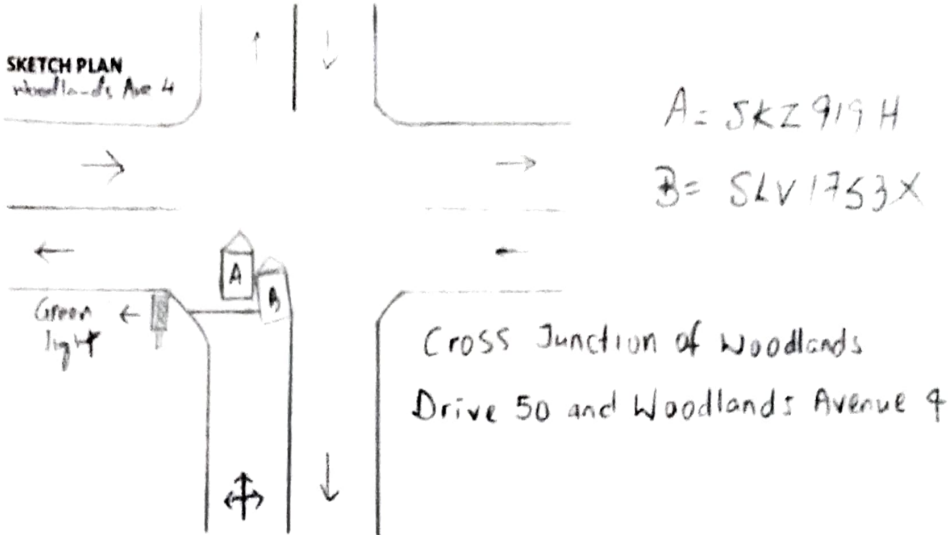 SKETCH PLAN
Woodlands Ave 4
A = SKZ 919 H
B = SLV 1753X
A
B
Green
light
Cross Junction of Woodlands
Drive 50 and Woodlands Avenue 4